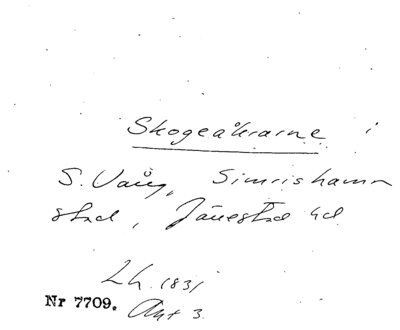 Skogeåkrarne i
S. Vång, Simrishamn
stad, Järrestad hd
Lh. 1831
Nr 7709. Akt 3.